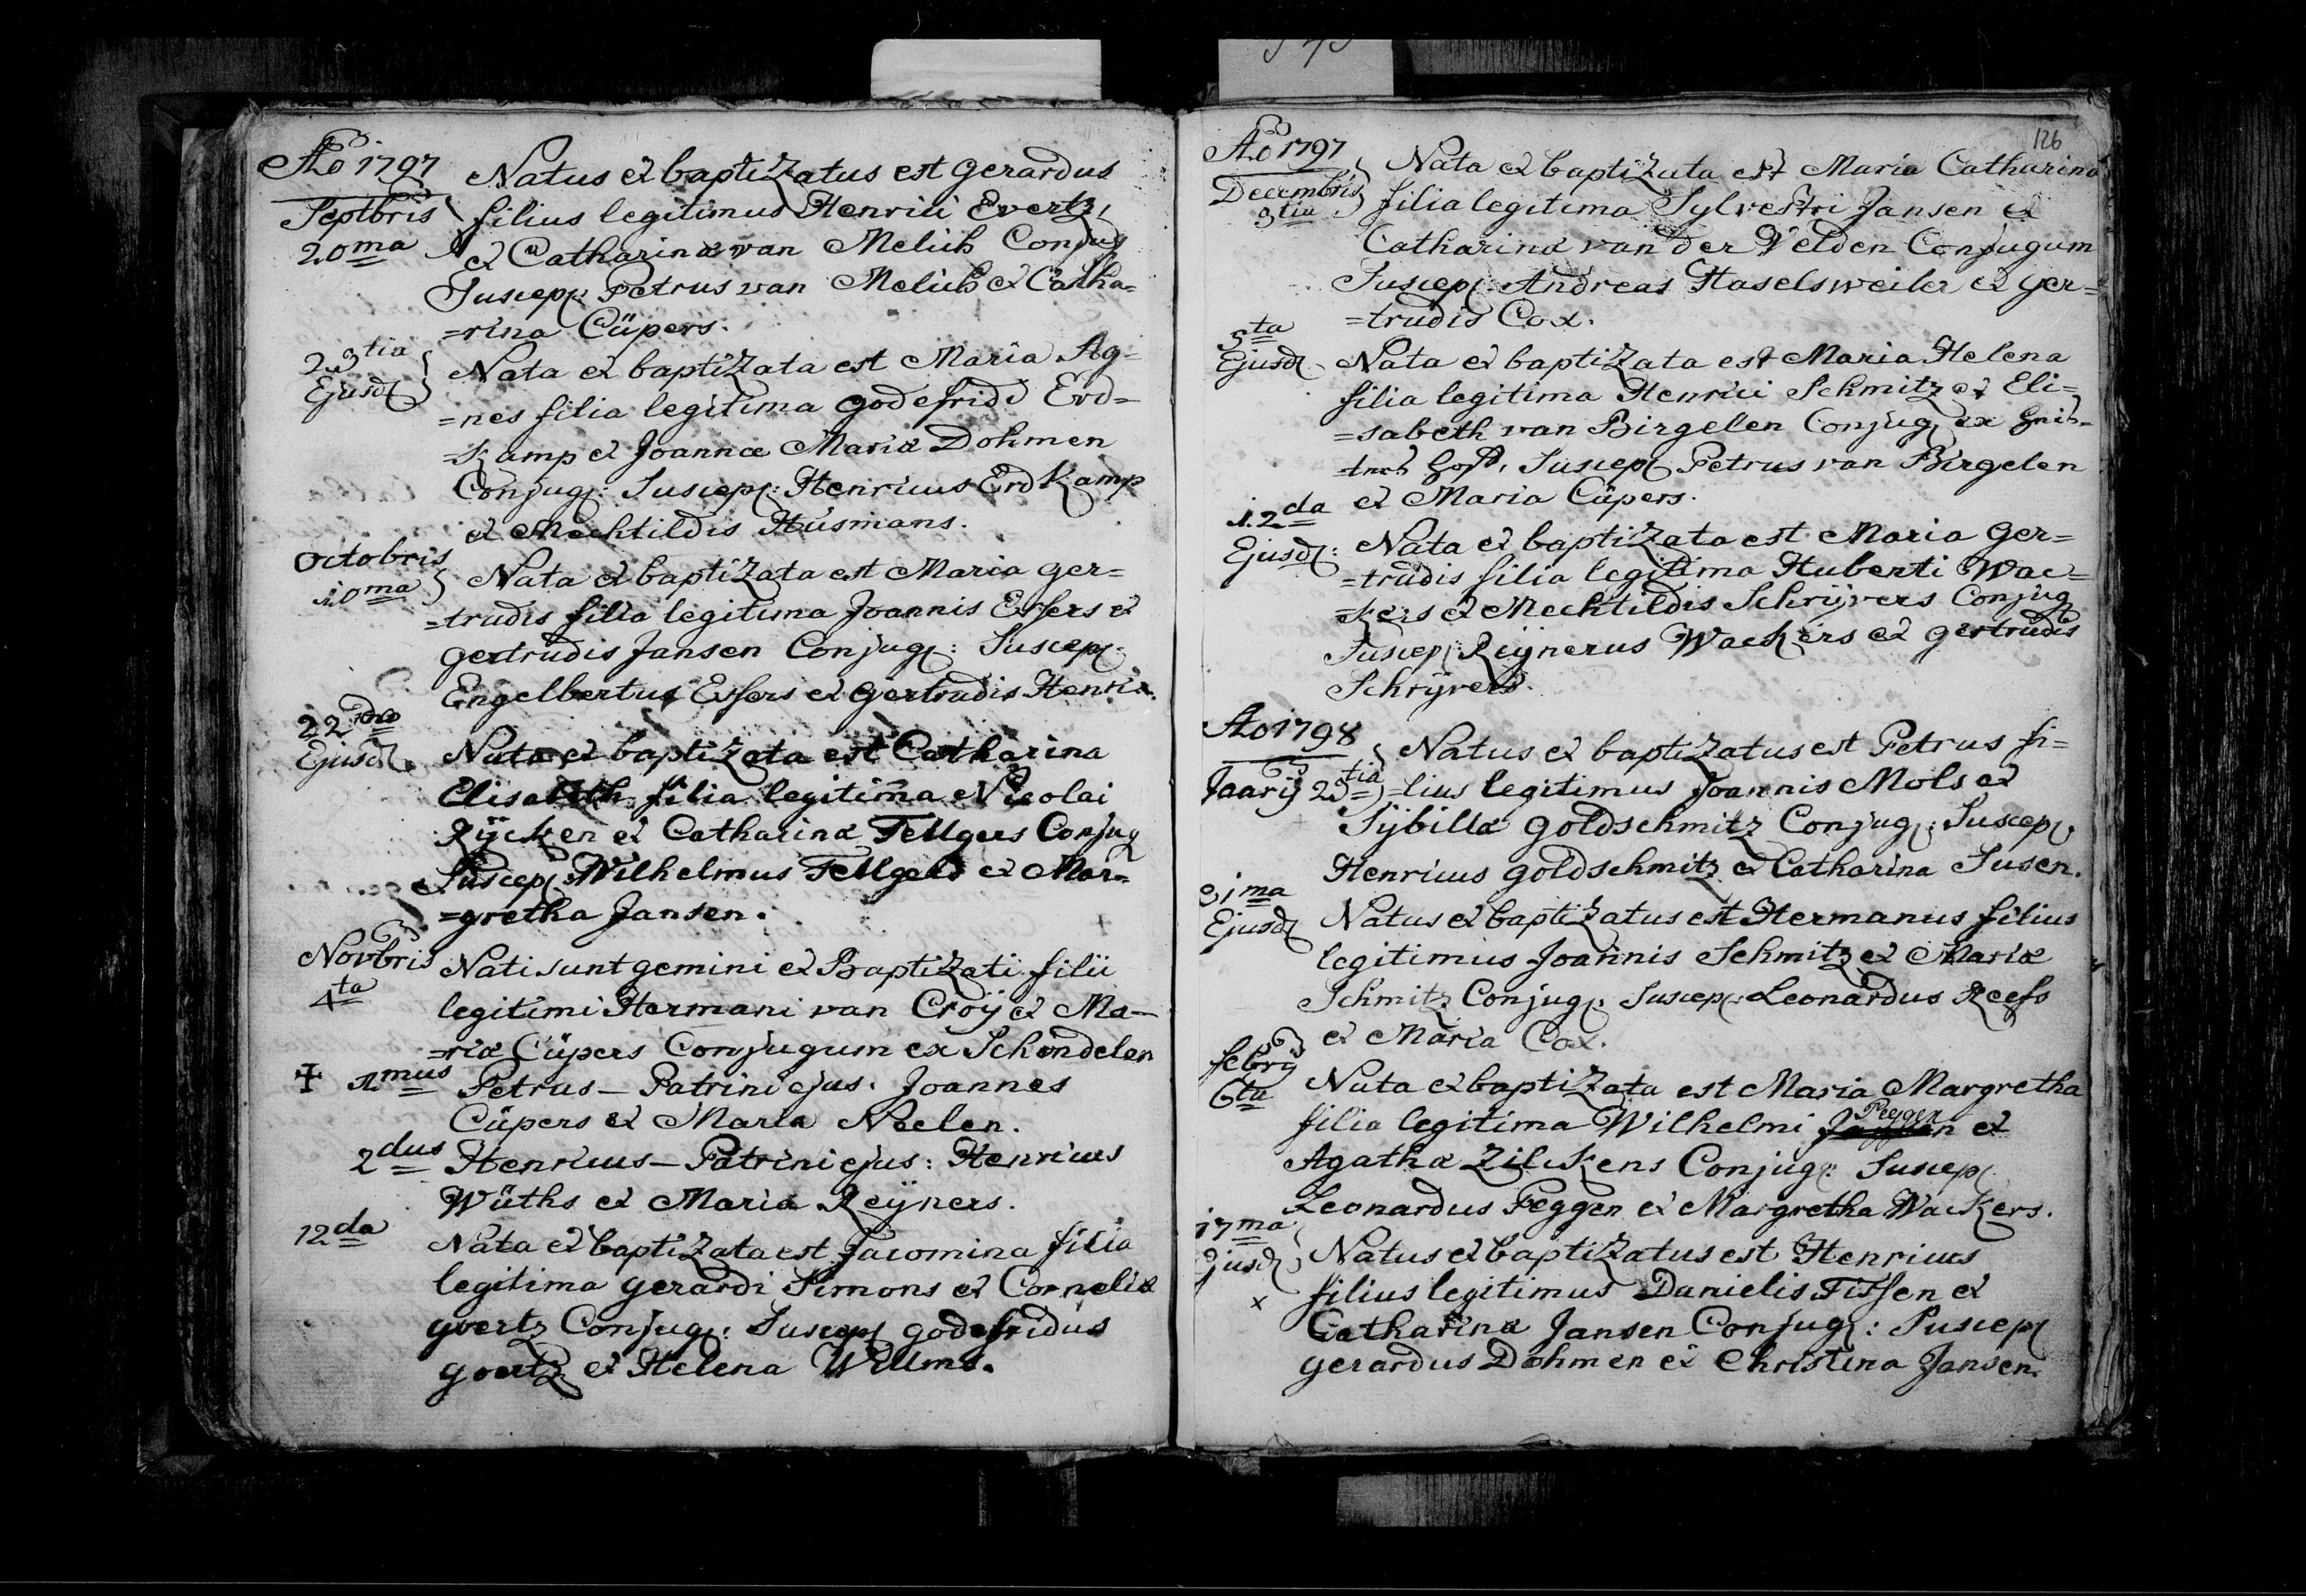 Ao 1797
Septbris
20ma
Natus et baptizatus est Gerardus
filius legitimus Henrici Evertz,
et Catharinæ van Melich Conjug
Suscep: Petrus van Melich et Catha=
=rina Cüpers.
23tia
Ejusd
Nata et baptizata est Maria Ag=
=nes filia legitima Godefridi Erd=
=kamp et Joannæ Mariæ Dohmen
Conjug: Suscep: Henricus Erdkamp
et Mechtildis Husmans.
Octobris
10ma
Nata et baptizata est Maria Ger=
=trudis filia legitima Joannis Essers et
Gertrudis Jansen Conjug: Suscep:
Engelbertus Essers et Gertrudis
22da
Ejusd
Nata et baptizata est Catharina
Elisabeth filia legitima Nicolai
Rÿcken et Catharinæ Fellgers Conjug
Suscep: Wilhelmus Fellgers et Mar=
=gretha Jansen.
Novbris
4ta
Nati sunt gemini et Baptizati filii
legitimi Hermani van Croÿ et Ma=
=riæ Cüpers Conjugum ex Schöndelen
✠ 1mus Petrus – Patrini ejus. Joannes
Cüpers et Maria Neelen.
2dus Henricus – Patrini ejus: Henricus
Wüths et Maria Reÿners.
12da
Nata et baptizata est Jacomina filia
legitima Gerardi Simons et Corneliæ
Goertz Conjug: Suscep Godefridus
Goertz et Helena Willms.
126
Ao 1797
Decembris
3tia
Nata et baptizata est Maria Catharina
filia legitima Sylvestri Jansen et
Catharinæ van der Velden Conjugum
Suscep: Andreas Haselsweiler et Ger=
=trudis Cox.
5ta
Ejusd
Nata et baptizata est Maria Helena
filia legitima Henrici Schmitz et Eli=
=sabeth van Birgelen Conjug ex
Suscep Petrus van Birgelen
et Maria Cüpers.
12da
Ejusd:
Nata et baptizata est Maria Ger=
=trudis filia legitima Huberti Wac=
=kers et Mechtildis Schrÿvers Conjug
Suscep: Reÿnerus Wackers et Gertrudis
Schrÿvers.
Ao 1798
Jaarÿ 23tia
Natus et baptizatus est Petrus fi=
=lius legitimus Joannis Mols et
Sÿbillæ Goldschmitz Conjug: Suscep:
Henricus Goldschmitz et Catharina Susen.
31ma
Ejusd
Natus et baptizatus est Hermanus filius
legitimus Joannis Schmitz et Mariæ
Schmitz Conjug: Suscep: Leonardus Reefs
et Maria Cox.
febrÿ
6ta
Nata et baptizata est Maria Margretha
Peggen
filia legitima Wilhelmi et
Agathæ Zilckens Conjug: Suscep
Leonardus Peggen et Margretha Wackers.
17ma
Ejusd
x
Natus et baptizatus est Henricus
filius legitimus Danielis Tissen et
Catharinæ Jansen Conjug: Suscep
Gerardus Dohmen et Christina Jansen.